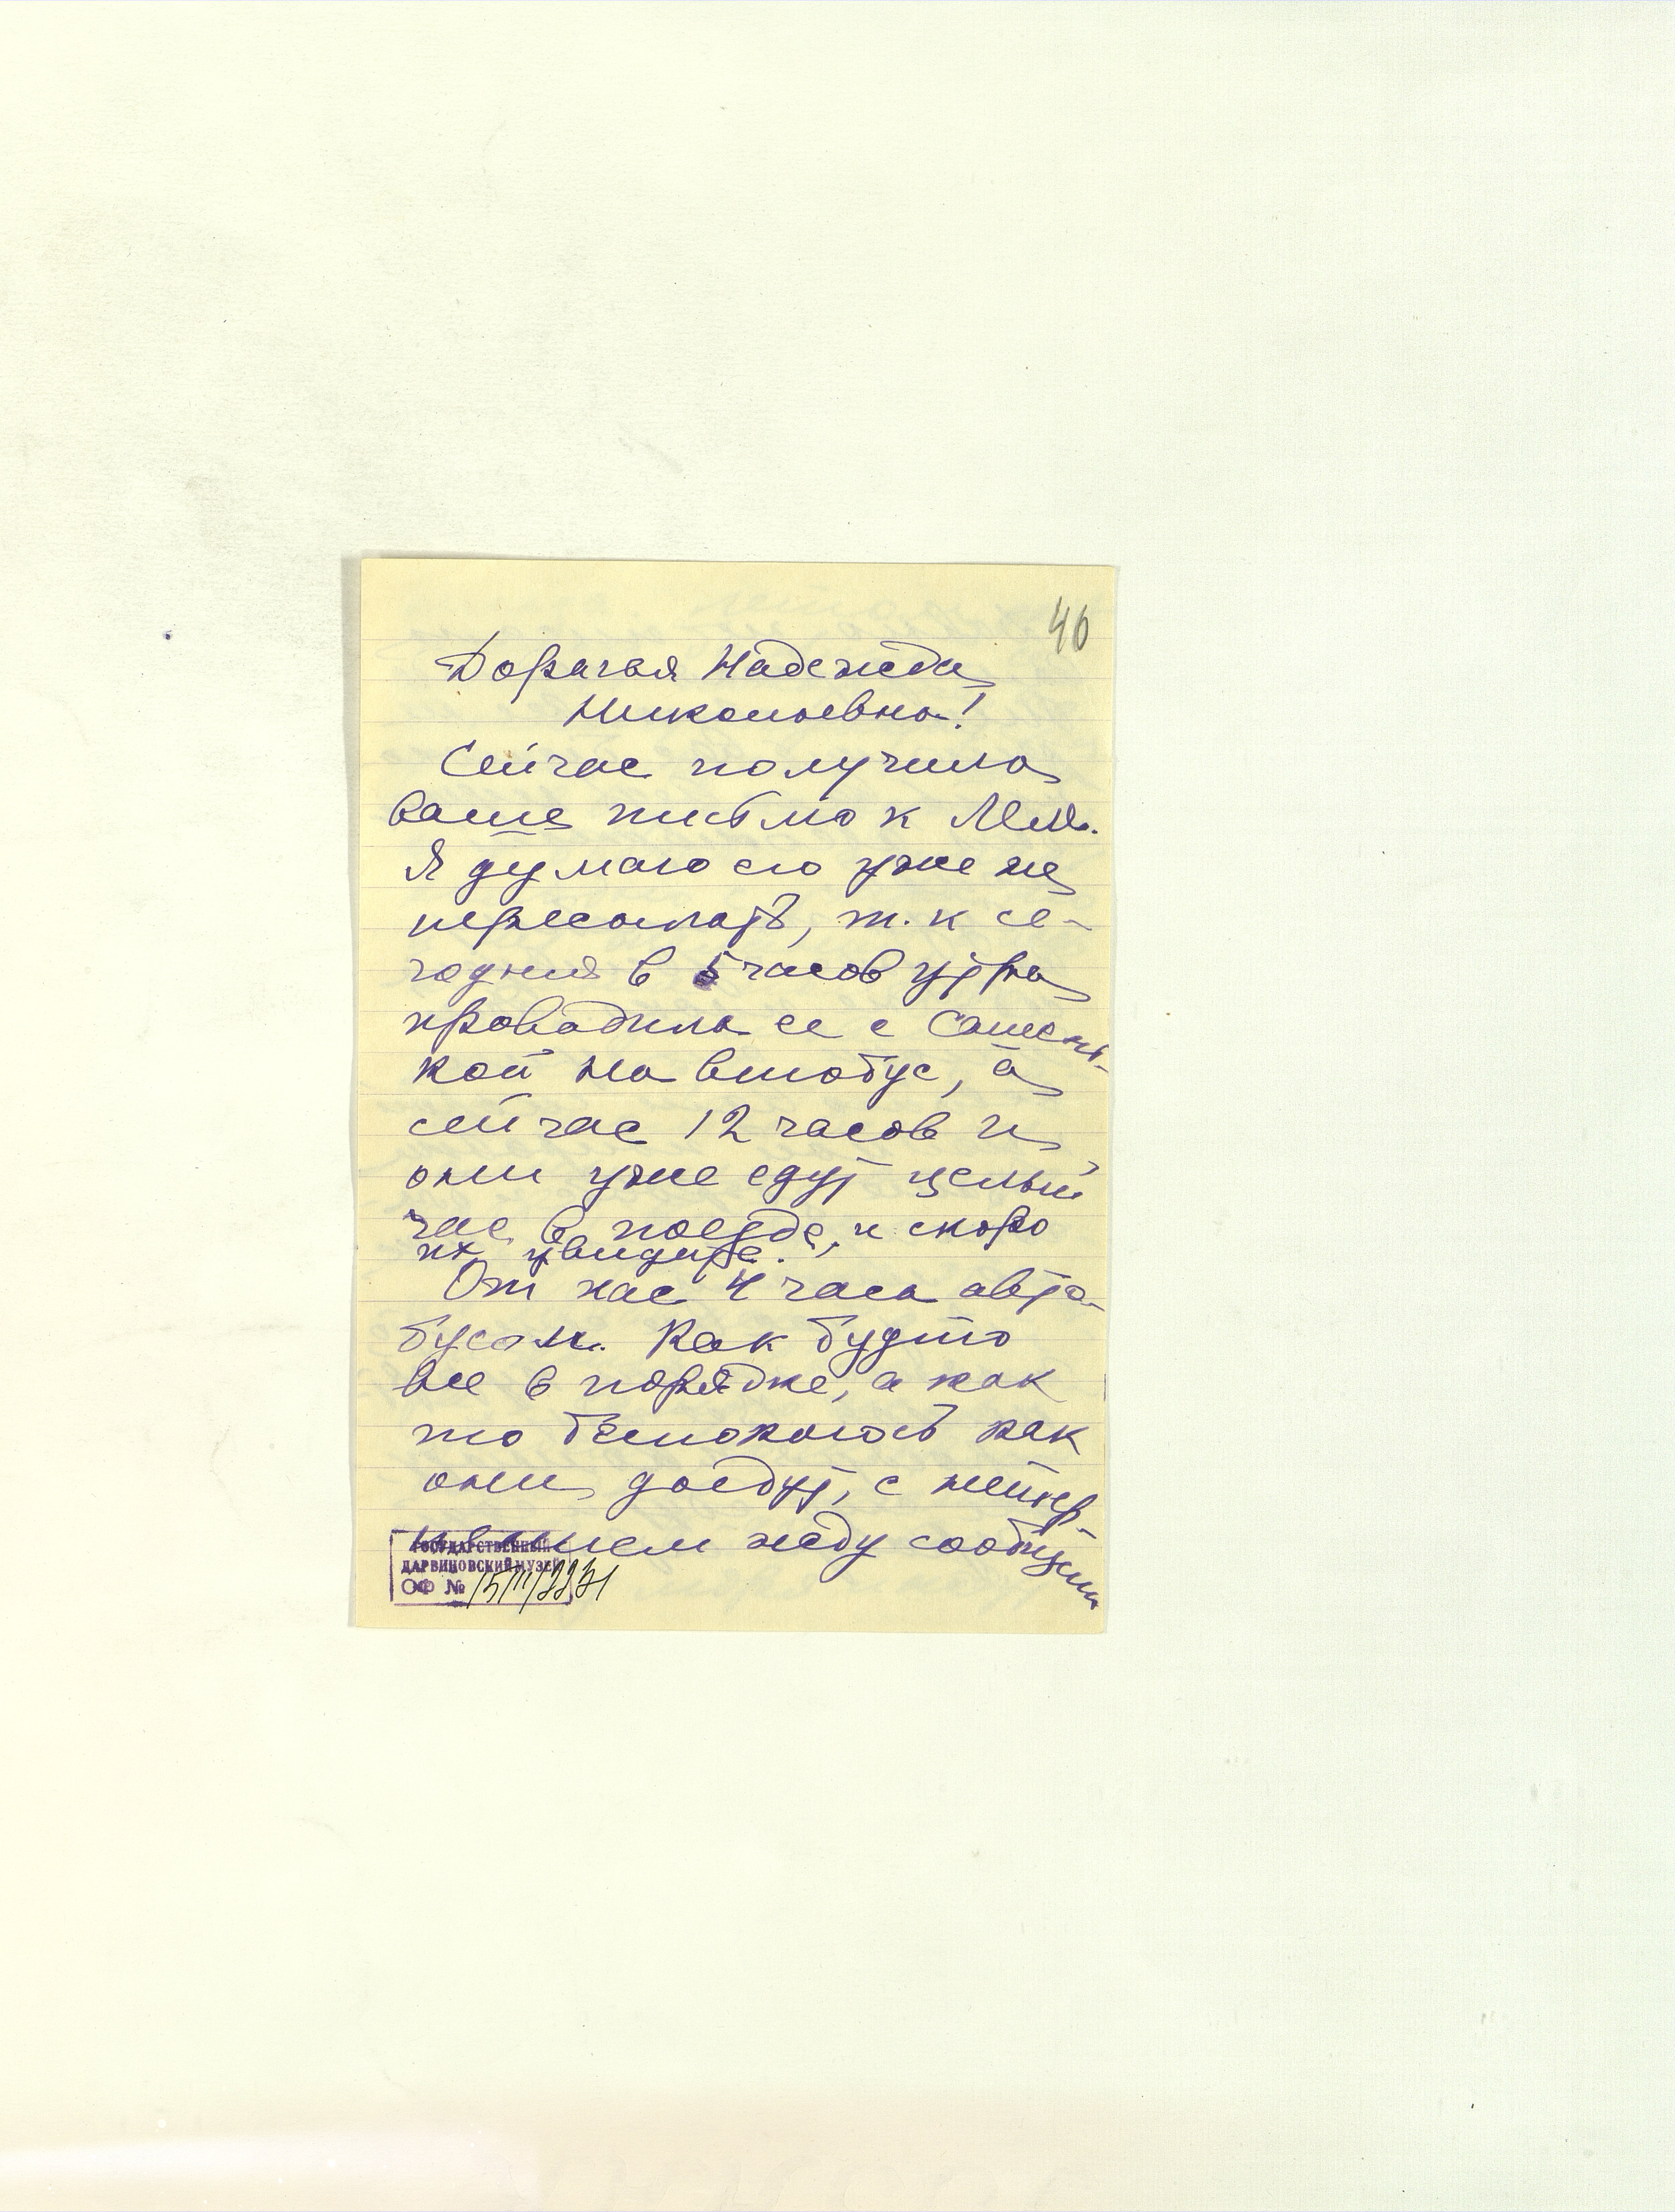 46
Дорагая Надежда
Николаевна!
Сейчас получила
ваше письмо к
Я думаю его уже не
пересылать, т.к се-
годня в 5 часов утра
проводила ее с Сашень-
кой на втобус, а
сейчас 12 часов и
они уже едут целый
час в поезде, и скоро
их увидите.
От нас 4 часа авто-
бусом. Как будто
все в порядке, а как
то беспокоюсь как
они доедут, с нетер-
пением жду сообщен
ГОСУДАРСТВЕННЫЙ
ДАРВИНОВСКИЙ МУЗЕЙ
ОФ №